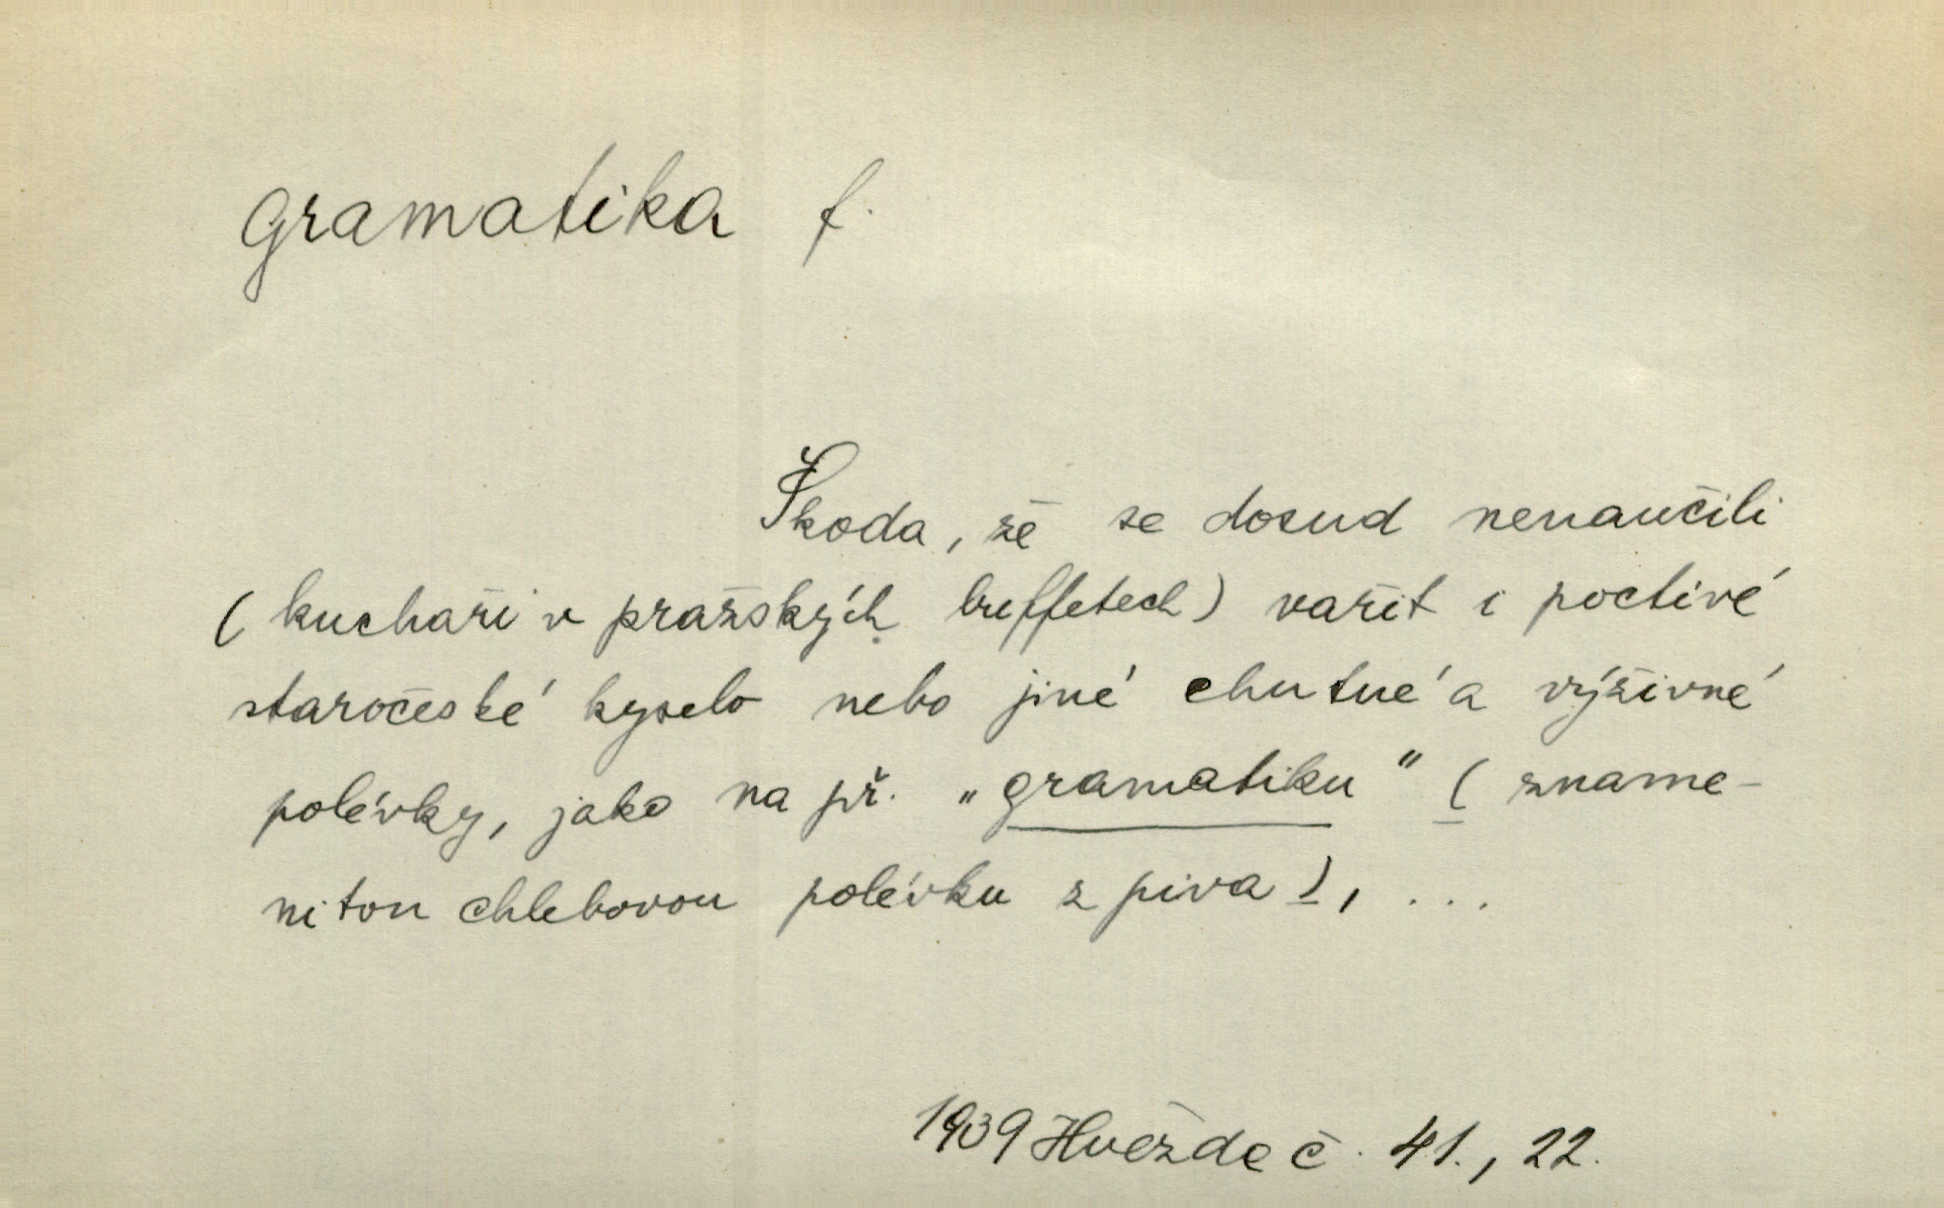 gramatika f.
Škoda, že se dosud nenaučili
(kuchaři v pražských buffetech) vařit i poctivé
staročeské kyselo nebo jiné chutné a výživné
polévky, jako na př. „gramatiku" (zname-
nitou chlebovou polévku z piva), ...
1939 Hvězda č. 41., 22.